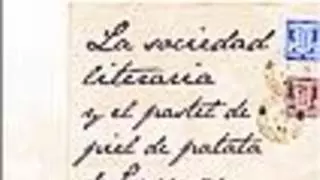 La sociedad
literaria
y el pastel de
piel de patata
de